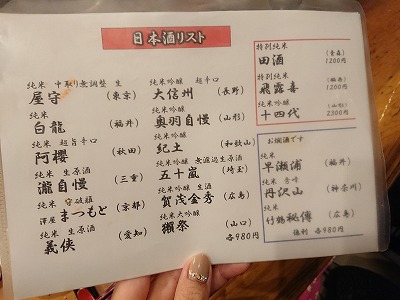 日本酒リスト
純米 中取り無調整 生
屋守 (東京)
純米
白龍 (福井)
純米 超旨辛口
阿櫻 (秋田)
純米 生原酒
瀧自慢 (三重)
純米
澤屋 まつもと (京都)
純米 生原酒
義侠 (愛知)
純米吟醸 超辛口
大信州 (長野)
純米吟醸
奥羽自慢 (山形)
純米吟醸
紀土 (和歌山)
純米吟醸 無濾過生原酒
五十嵐 (埼玉)
純米吟醸 生酒
賀茂金秀 (広島)
純米大吟醸
獺祭 (山口)
各980円
特別純米 (青森)
田酒 1200円
特別純米 (福島)
飛露喜 1200円
純米吟醸 (山形)
十四代 2300円
お燗酒です
純米
早瀬浦 (福井)
純米 秀峰
丹沢山 (神奈川)
純米
竹鶴秘傳 (広島)
徳利 各980円